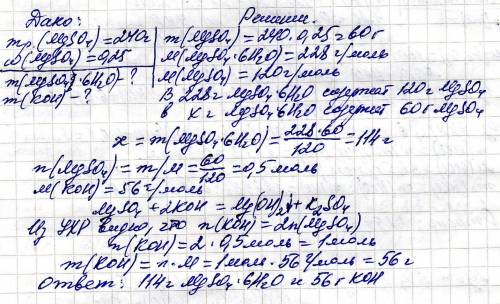 Дако:
Решение.
mр.(MgSO₄)=240г
ω(MgSO₄)=0,25
m(MgSO₄·6H₂O)-?
m(KOH)-?
m(MgSO₄)=240·0,25=60г
M(MgSO₄·6H₂O)=228г/моль
M(MgSO₄)=120г/моль
В 228г MgSO₄·6H₂O содержат 120г MgSO₄
В x г MgSO₄·6H₂O содержат 60г MgSO₄
x = m(MgSO₄·6H₂O)=228·60/120=114г
n(MgSO₄)=m/M=60/120=0,5моль
M(KOH)=56г/моль
MgSO₄+2KOH=Mg(OH)₂↓+K₂SO₄
Из УХР видно, что n(KOH)=2n(MgSO₄)
n(KOH)=2·0,5моль=1моль
m(KOH)=n·M=1моль·56г/моль=56г
Ответ: 114г MgSO₄·6H₂O и 56г KOH